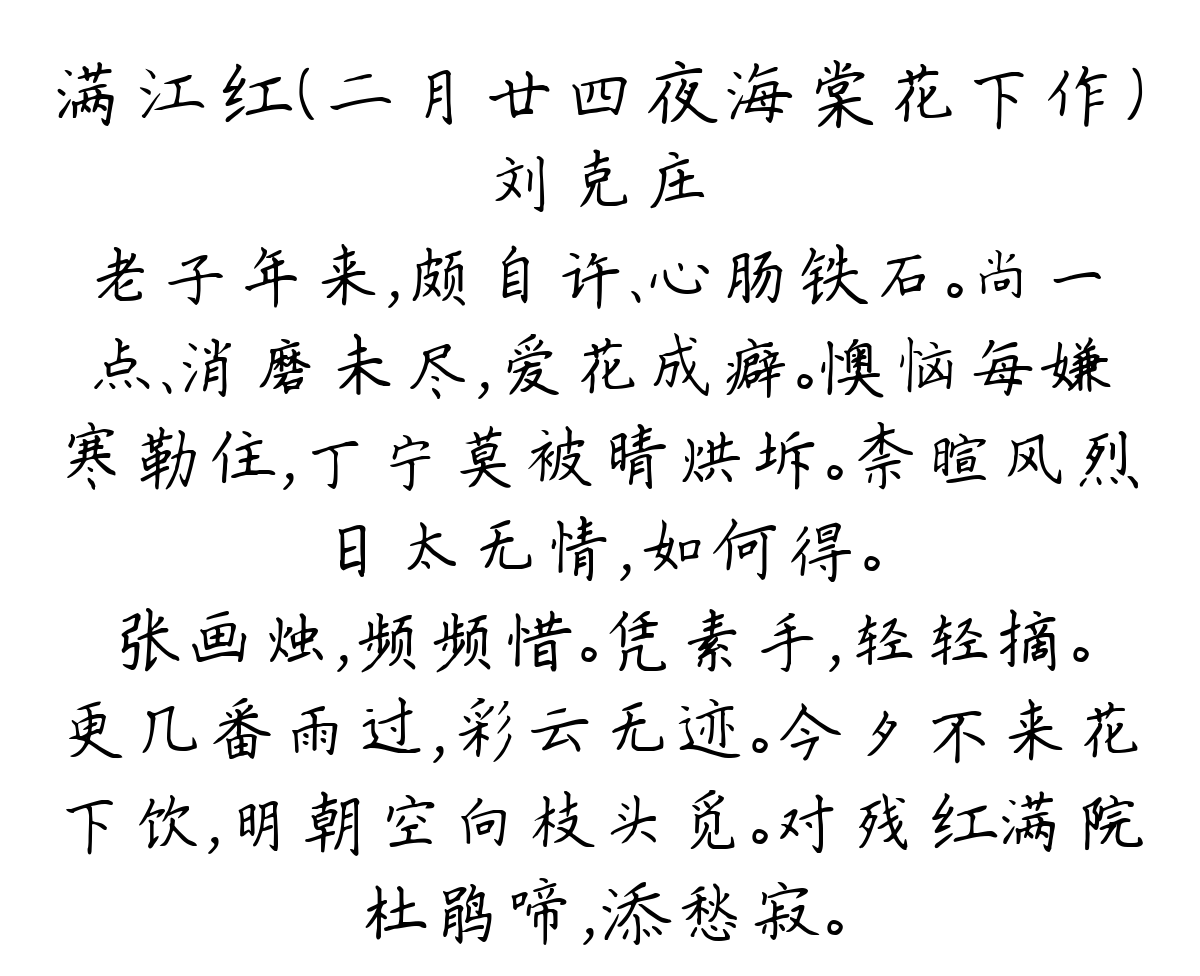 满江红(二月廿四夜海棠花下作)
刘克庄
老子年来,颇自许、心肠铁石。尚一
点、消磨未尽,爱花成癖。懊恼每嫌
寒勒住,丁宁莫被晴烘坼。柰暄风烈
日太无情,如何得。
张画烛,频频惜。凭素手,轻轻摘。
更几番雨过,彩云无迹。今夕不来花
下饮,明朝空向枝头觅。对残红满院
杜鹃啼,添愁寂。